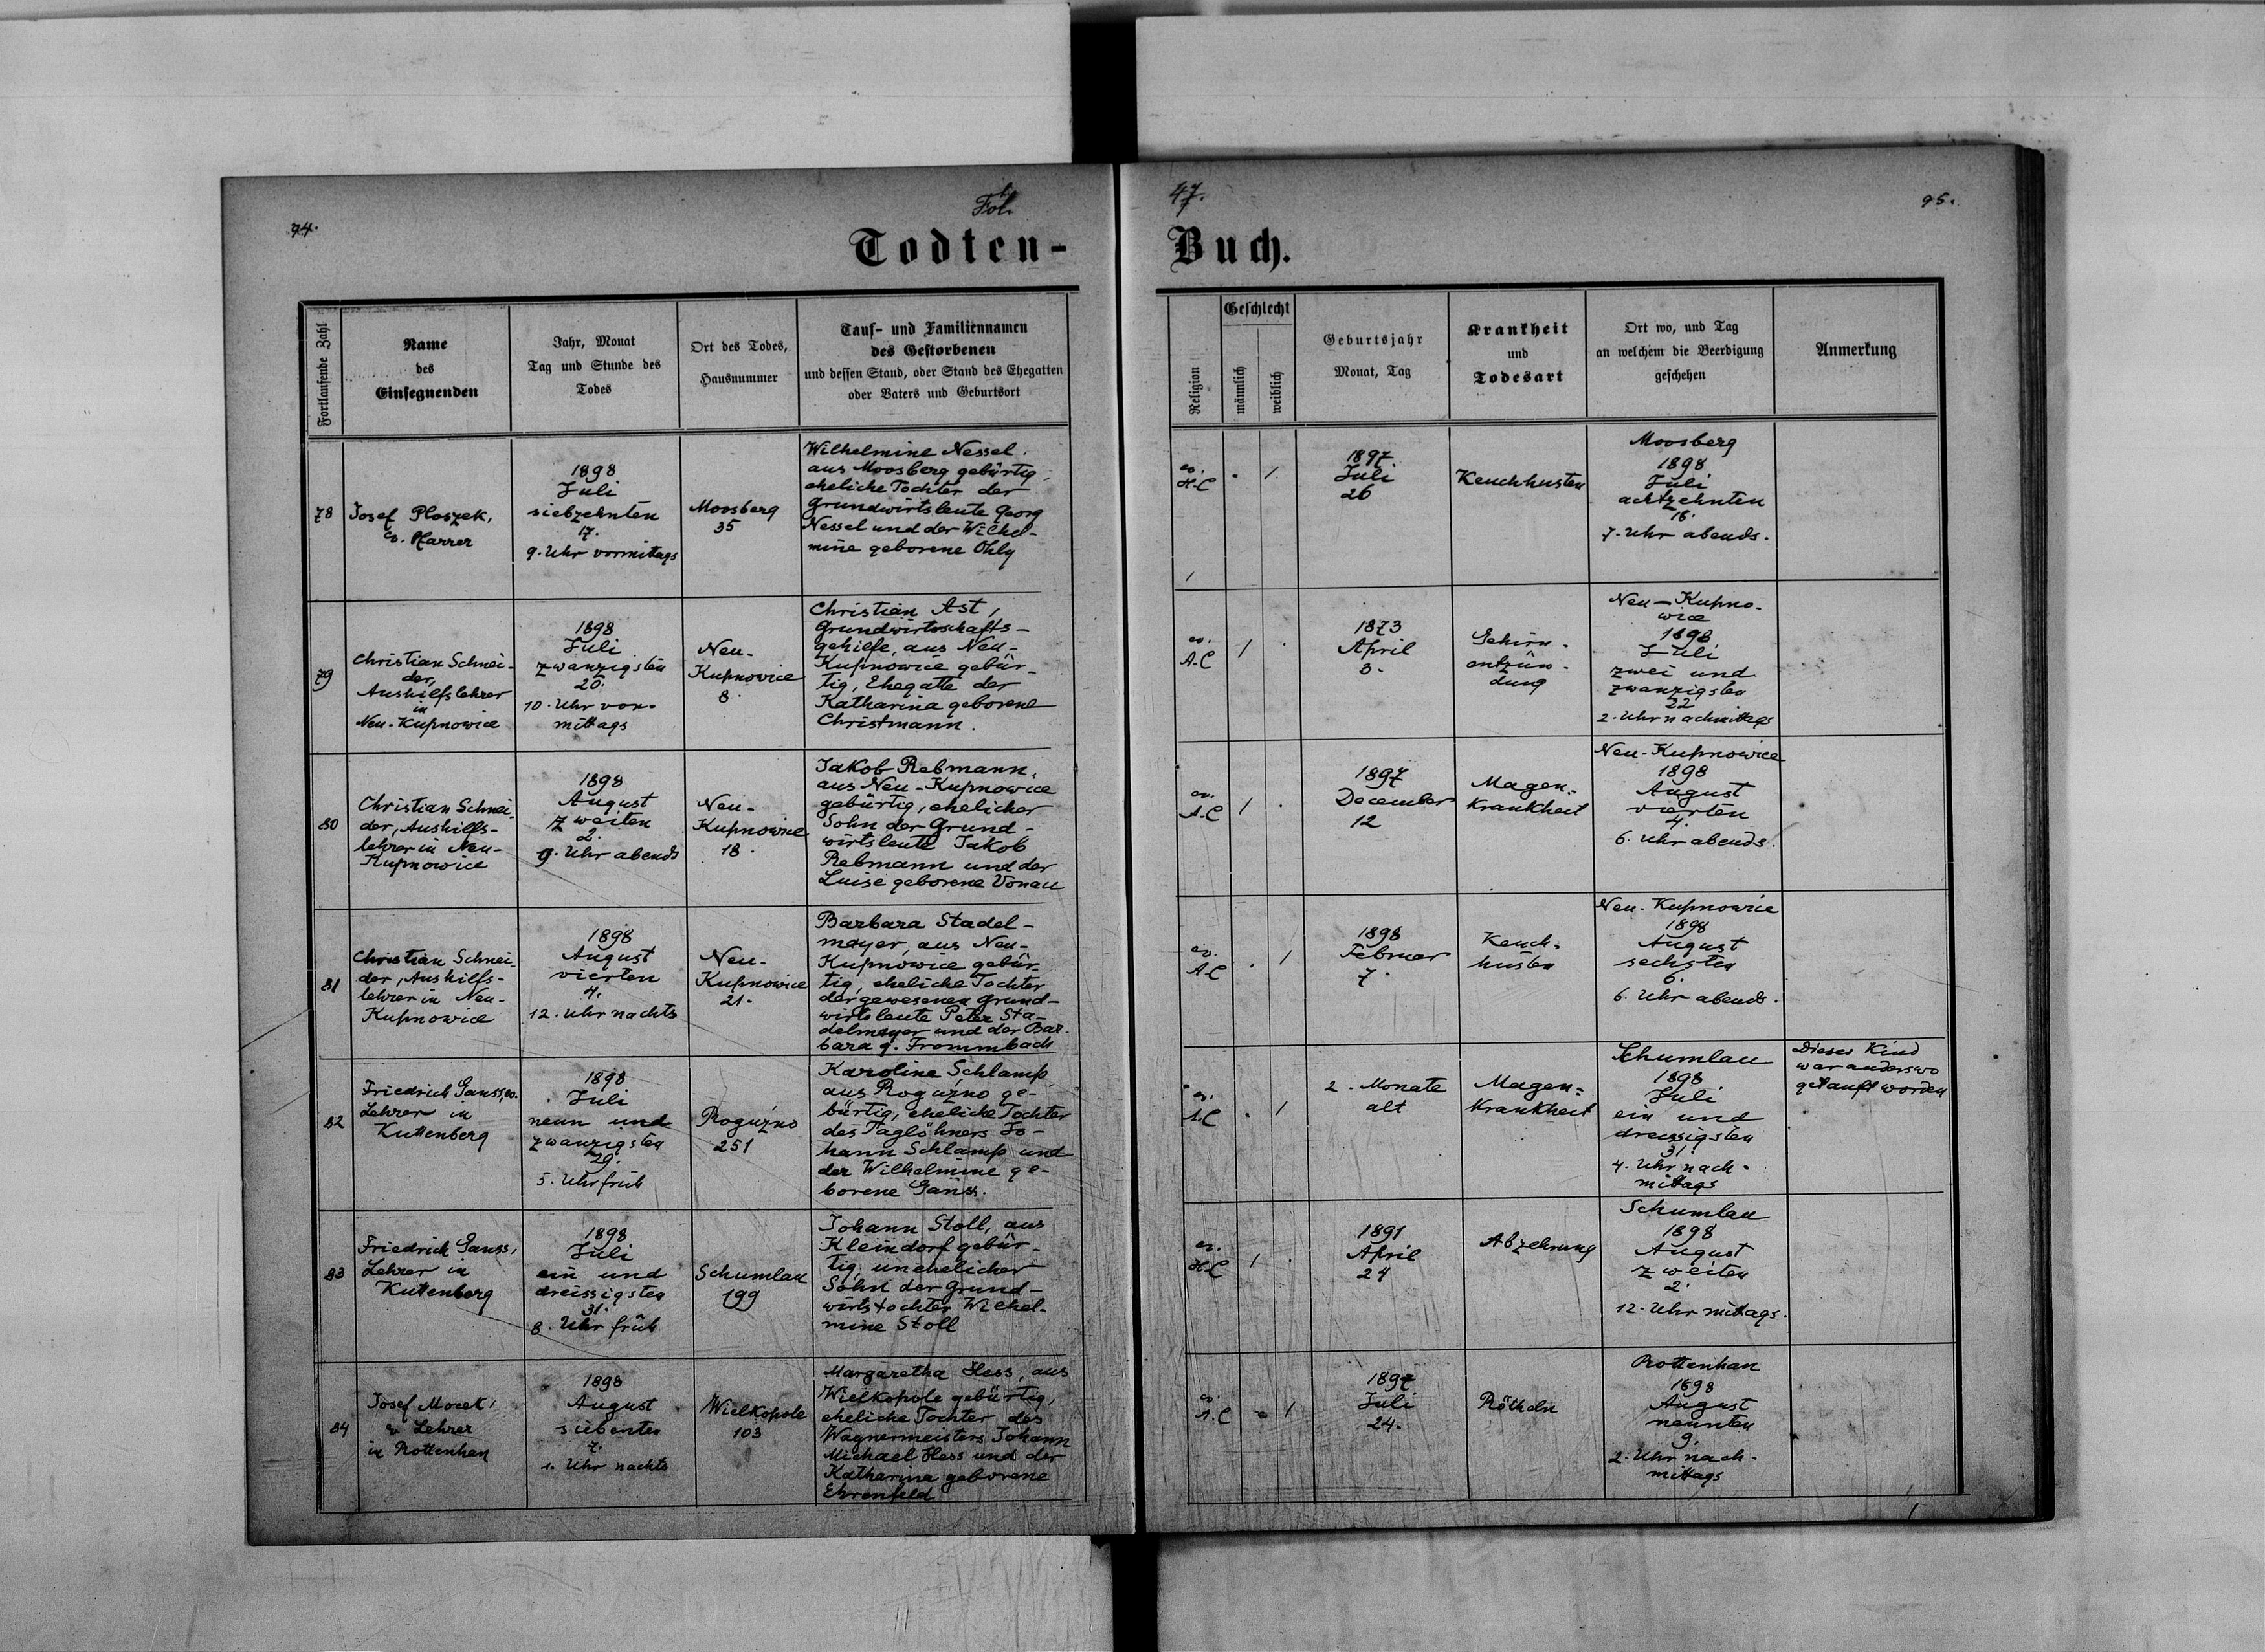 94.
Fol.
47.
95.
Todten-
Buch.
Fortlaufende Zahl
Name
des
Einsegnenden
Jahr, Monat
Tag und Stunde des
Todes
Ort des Todes,
Hausnummer
Tauf- und Familiennamen
des Gestorbenen
und dessen Stand, oder Stand des Ehegatten
oder Vaters und Geburtsort
Religion
Geschlecht
männlich
weiblich
Geburtsjahr
Monat, Tag
Krankheit
und
Todesart
Ort wo, und Tag
an welchem die Beerdigung
geschehen
Anmerkung
78
Josef Ploszek,
ev. Pfarrer
1898
Juli
siebzehnten
17.
9. Uhr vormitags
Moosberg
35
Wilhelmine Nessel.
aus Moosberg gebürtig,
eheliche Tochter der
Grundwirtsleute Georg
Nessel und der Wilhel-
mine geborene Ohly
ev.
H.C
1897
Juli
26
Keuchhusten
Moosberg
1898
Juli
achtzehnten
18.
7. Uhr abends.
79
Christian Schnei-
der,
Aushilfslehrer
in
Neu-Kupnowice
1898
Juli
zwanzigsten
20.
10. Uhr vor-
mittags
Neu-
Kupnowice
8.
Christian Ast,
Grundwirtschafts-
gehilfe, aus Neu-
Kupnowice gebür-
tig, Ehegatte der
Katharina geborene
Christmann.
ev.
A.C
1873
April
3.
Gehirn-
entzün-
dung
Neu-Kupno-
wice
1898
Juli
zwei und
zwanzigsten
22
2. Uhr nachmittags
80
Christian Schnei-
der, Aushilfs-
lehrer in Neu-
Kupnowice
1898
August
zweiten
2.
9. Uhr abends
Neu-
Kupnowice
18.
Jakob Rebmann,
aus Neu-Kupnowice
gebürtig, ehelicher
Sohn der Grund-
wirtsleute Jakob
Rebmann und der
Luise geborene Vonau
ev.
A.C
1897
December
12
Magen-
krankheit
Neu-Kupnowice
1898
August
vierten
4.
6. Uhr abends.
81
Christian Schnei-
der, Aushilfs-
lehrer in Neu-
Kupnowice
1898
August
vierten
4.
12. Uhr nachts
Neu-
Kupnowice
21.
Barbara Stadel-
mayer, aus Neu-
Kupnowice gebür-
tig, eheliche Tochter
der gewesenen Grund-
wirtsleute Peter Sta-
delmayer und der Bar-
bara g. Frommbach
ev.
A.C
1898
Februar
7.
Keuch-
husten
Neu-Kupnowice
1898
August
sechsten
6.
6. Uhr abends.
82
Friedrich Ganss, ev.
Lehrer in
Kuttenberg
1898
Juli
neun und
zwanzigsten
29.
5. Uhr früh
Roguźno
251
Karoline Schlamp
aus Roguźno ge-
bürtig, eheliche Tochter
des Taglöhners Jo-
hann Schlamp und
der Wilhelmine ge-
borene Ganss.
ev.
A.C
2. Monate
alt
Magen-
krankheit
Schumlau
1898
Juli
ein und
dreissigsten
31.
4. Uhr nach-
mittags
Dieses Kind
war anderswo
getauft worden
83
Friedrich Ganss,
Lehrer in
Kuttenberg
1898
Juli
ein und
dreissigsten
31.
8. Uhr früh
Schumlau
199
Johann Stoll, aus
Kleindorf gebür-
tig, unehelicher
Sohn der Grund-
wirtstochter Wilhel-
mine Stoll
ev.
H.C
1891
April
24
Abzehrung
Schumlau
1898
August
zweiten
2.
12. Uhr mittags.
84
Josef Mocek,
ev. Lehrer
in Rottenhan
1898
August
siebenten
7.
1. Uhr nachts
Wielkopole
103
Margaretha Hess, aus
Wielkopole gebürtig,
eheliche Tochter des
Wagnermeisters Johann
Michael Hess und der
Katharina geborene
Ehrenfeld
ev.
A.C
1897
Juli
24.
Rötheln
Rottenhan
1898
August
neunten
9.
2. Uhr nach-
mittags